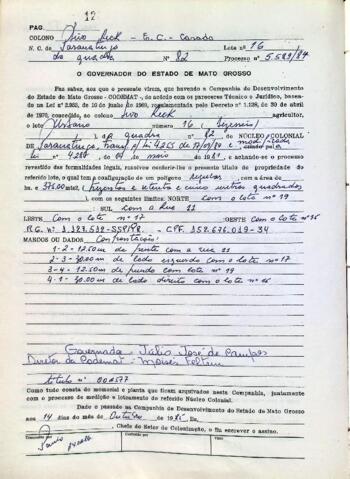 12
PAG.
COLONO Sivo Reck - E. C. - Casado
N. C. de Paranatinga Lote nº 16
da quadra Nº 82 Processo nº 5.589/84
O GOVERNADOR DO ESTADO DE MATO GROSSO
Faz saber, aos que o presente virem, que havendo a Companhia do Desenvolvimento
do Estado de Mato Grosso - CODEMAT -, de acôrdo com os pareceres Técnico e Jurídico, basea-
da na Lei nº 2.933, de 16 de junho de 1969, regulamentada pelo Decreto nº 1.138, de 30 de abril
de 1970, concedido, ao colono Sivo Reck agricultor,
o lote Urbano número 16 (dezesseis)
da quadra nº 82, do NÚCLEO COLONIAL
de Paranatinga, Transf. p/ Lei 4.155 de 17/12/79 e
Lei nº 4.288 de 04 de maio de 1981, e achando-se o processo
revestido das formalidades legais, resolveu conferir-lhe o presente título de propriedade
do referido lote, o qual tem a configuração de um polígono regular, com a área de
ha. e 375.00 m², (trezentos e setenta e cinco metros quadrados
), com os seguintes limites: NORTE com o lote nº 19
SUL com a Rua 11
LESTE com o lote nº 17 OESTE com o lote nº 15
MARCOS OU DADOS Confrontação:
1-2 - 12.50m de frente com a rua 11
2-3 - 30.00m de lado esquerdo com o lote nº 17
3-4 - 12.50m de fundo com lote nº 19
4-1 - 30.00m de lado direito com o lote nº 15
Governador - Júlio José de Campos
Diretor da Codemat - Moisés Feltrin
título nº 004577
Como tudo consta do memorial e planta que ficam arquivados nesta Companhia, juntamente
com o processo de medição e loteamento do referido Núcleo Colonial.
Dado e passado na Companhia de Desenvolvimento do Estado de Mato Grosso
aos 14 dias do mês de Outubro de 1985. Eu
, Chefe do Setor de Colonização, o fiz escrever e assino.